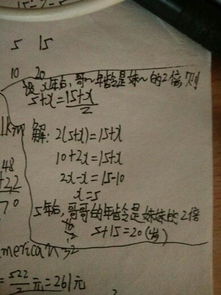 5 15
10 20
设x年后,哥~年龄是妹~的2倍,则
5+x=15+x/2
解: 2(5+x)=15+x
10+2x=15+x
2x-x=15-10
x=5
5年后,哥哥的年龄是妹妹的2倍
5+15=20(岁)
48
+22
70
=522/2元=261元